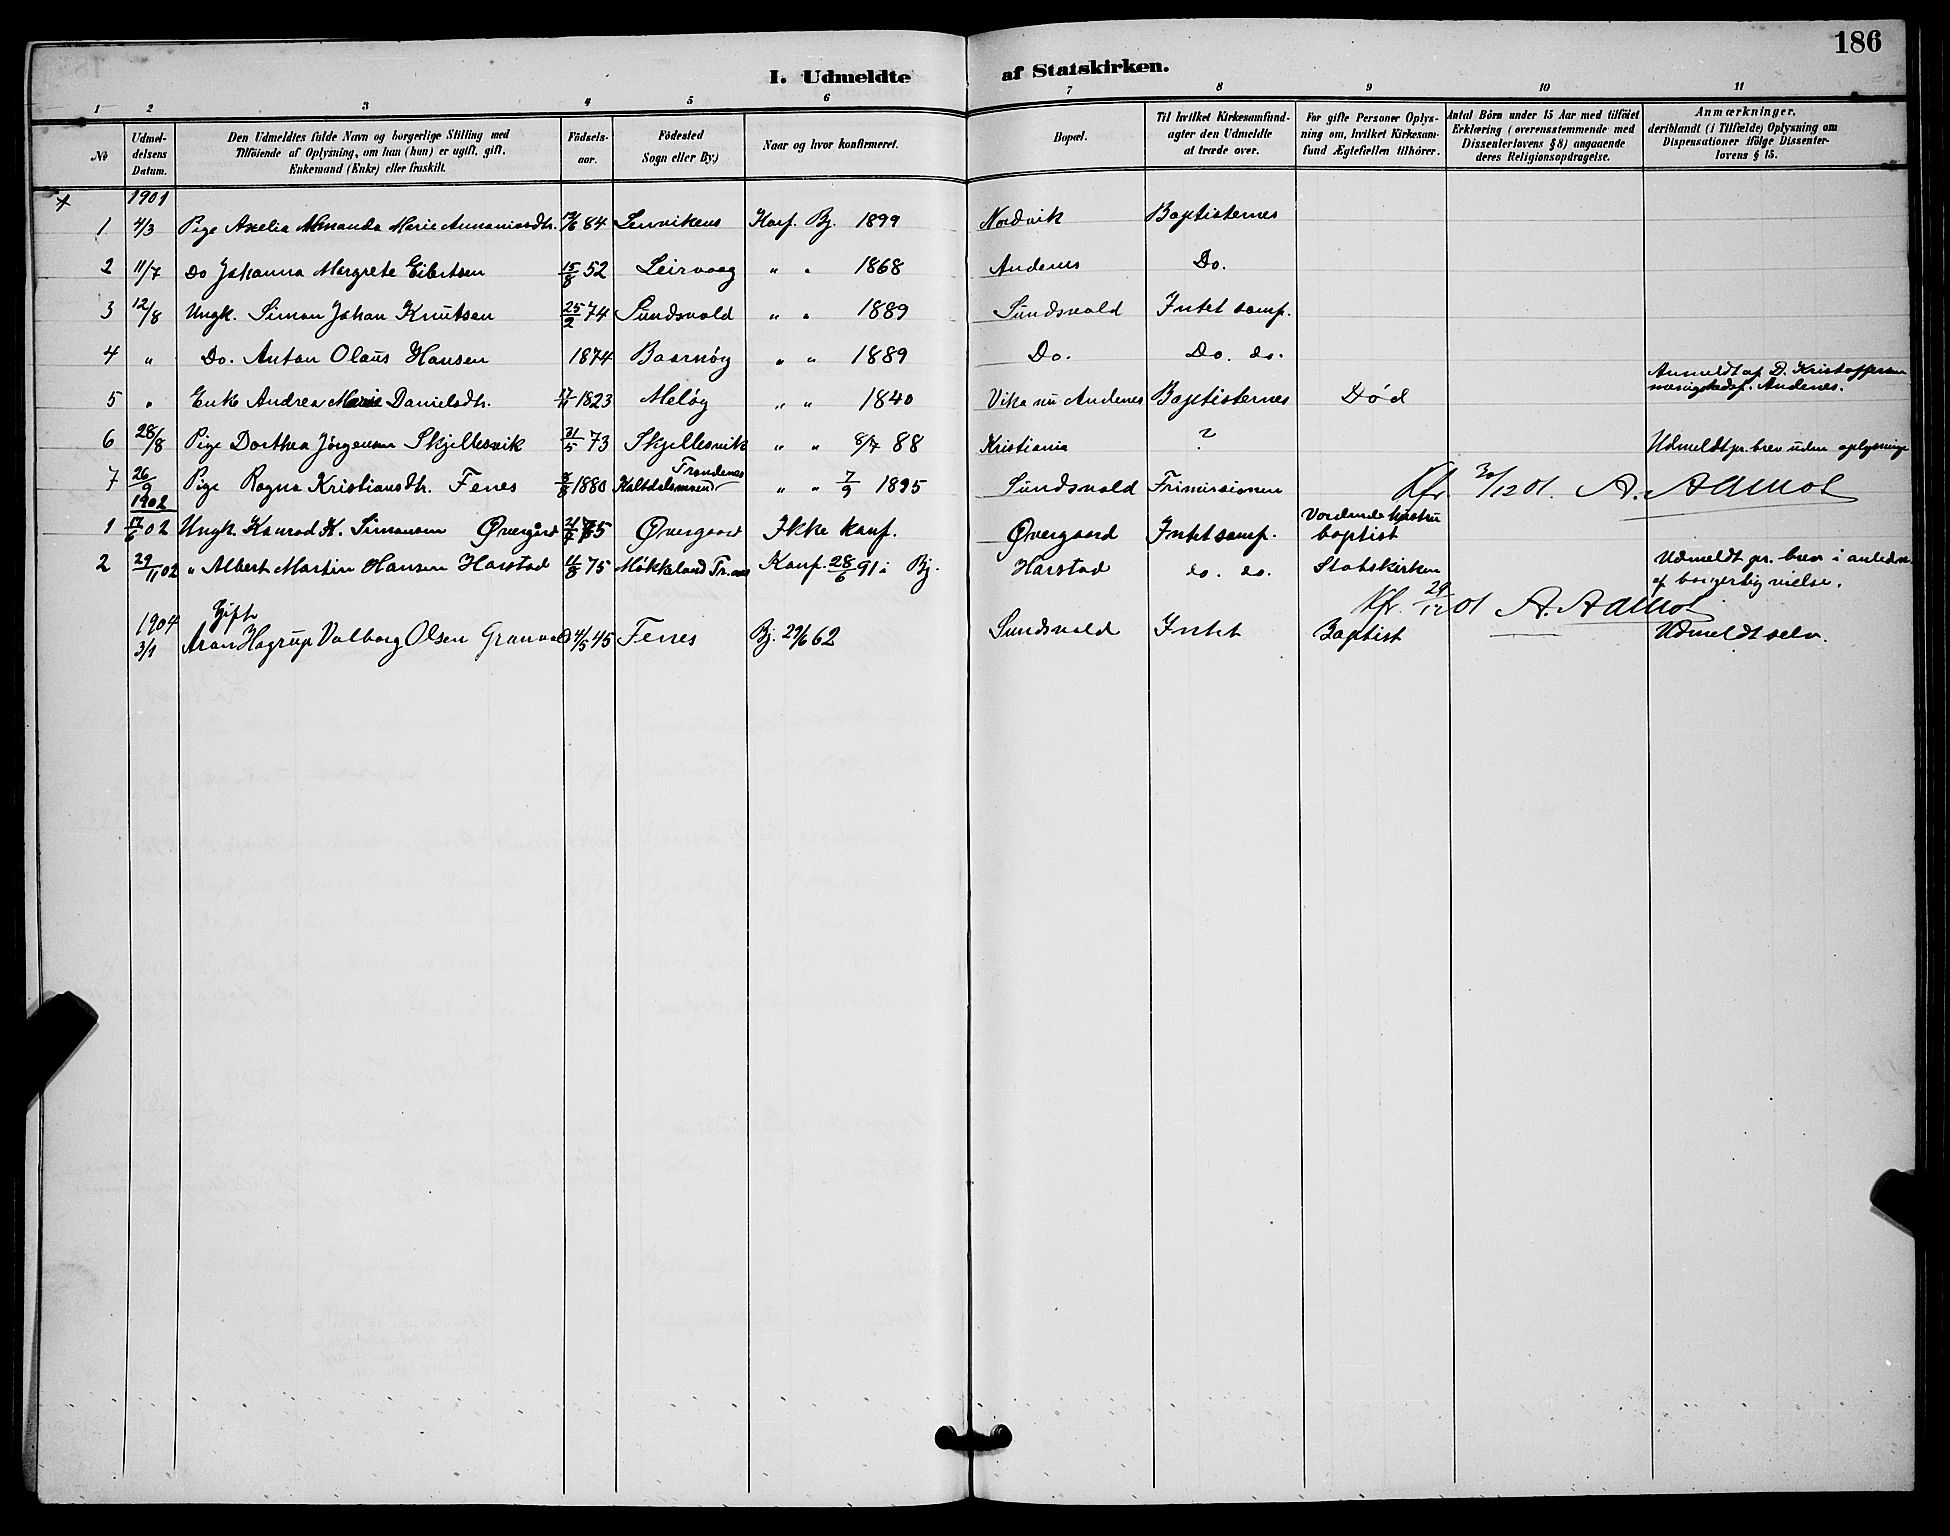 186
I. Udmeldte af Statskirken.
1 2 3 4 5 6 7 8 9 10 11
№
Udmel-
delsens
Datum.
Den Udmeldtes fulde Navn og borgerlige Stilling med
Tilföiende af Oplysning, om han (hun) er ugift, gift,
Enkemand (Enke) eller fraskilt.
Födsels-
aar.
Födested
Sogn eller By.)
Naar og hvor konfirmeret.
Bopæl.
Til hvilket Kirkesamfund-
agter den Udmeldte
at træde over.
For gifte Personer Oplys-
ning om, hvilket Kirkesam-
fund Ægtefællen tilhörer.
Antal Börn under 15 Aar med tilföiet
Erklæring (overensstemmende med
Dissenterlovens § 8) angaaende
deres Religionsopdragelse.
Anmærkninger,
deriblandt (i Tilfælde) Oplysning om
Dispensationer ifölge Dissenter-
lovens § 15.
x 1901
1 4/3 Pige Axelia Amanda Marie Annaniasdtr. 84 Lenvikens Konf. Bj. 1899 Nordvik Baptisternes
2 11/7 Do Johanna Margrete Eibertsen 15/8 52 Leirvaag " " 1868 Andenes Do.
3 12/8 Ungk. Simon Johan Knutsen 25/2 74 Sundsvold " " 1889 Sundsvold Intet samf.
4 " Do. Anton Olaus Hansen 1874 Baarnöy " " 1889 Do. Do. do.
5 " Enke Andrea Marie Danielsdtr. 17/11 1823 Melöy " " 1840 Vika nu Andenes Baptisternes Död Anmeldt af D. Kristoffersen
Andenes.
6 28/8 Pige Dorthea Jörgensen Skjellesvik 31/5 73 Skjellesvik " " 8/7 88 Kristiania ? Udmeldt pr. brev uden oplysninge
7 26/9 Pige Ragna Kristiansdtr. Fenes 1880 Trondenes " " 7/9 1895 Sundsvold Frimissionen Kfr. 30/12 01. A. Aamot
1902
1 17/6 02 Ungk. Konrad K. Simonsen Øvergård Øvergaard Ikke konf. Øvergaard Intet samf. Vordende hustru
baptist
2 29/11 02 " Albert Martin Hansen Harstad 11/8 75 Mökkeland Tr.nes Konf. 28/6 91 i Bj. Harstad do. do. Statskirken Udmeldt pr. brev i anledn.
af borgerlig vielse.
Kfr. 29/12 01 A. Aamot
1904 Gift
3/1 Aron Hagrup Valborg Olsen Granvold 4/5 45 Fenes Bj. 29/6 62 Sundsvold Intet Baptist Udmeldt selv.